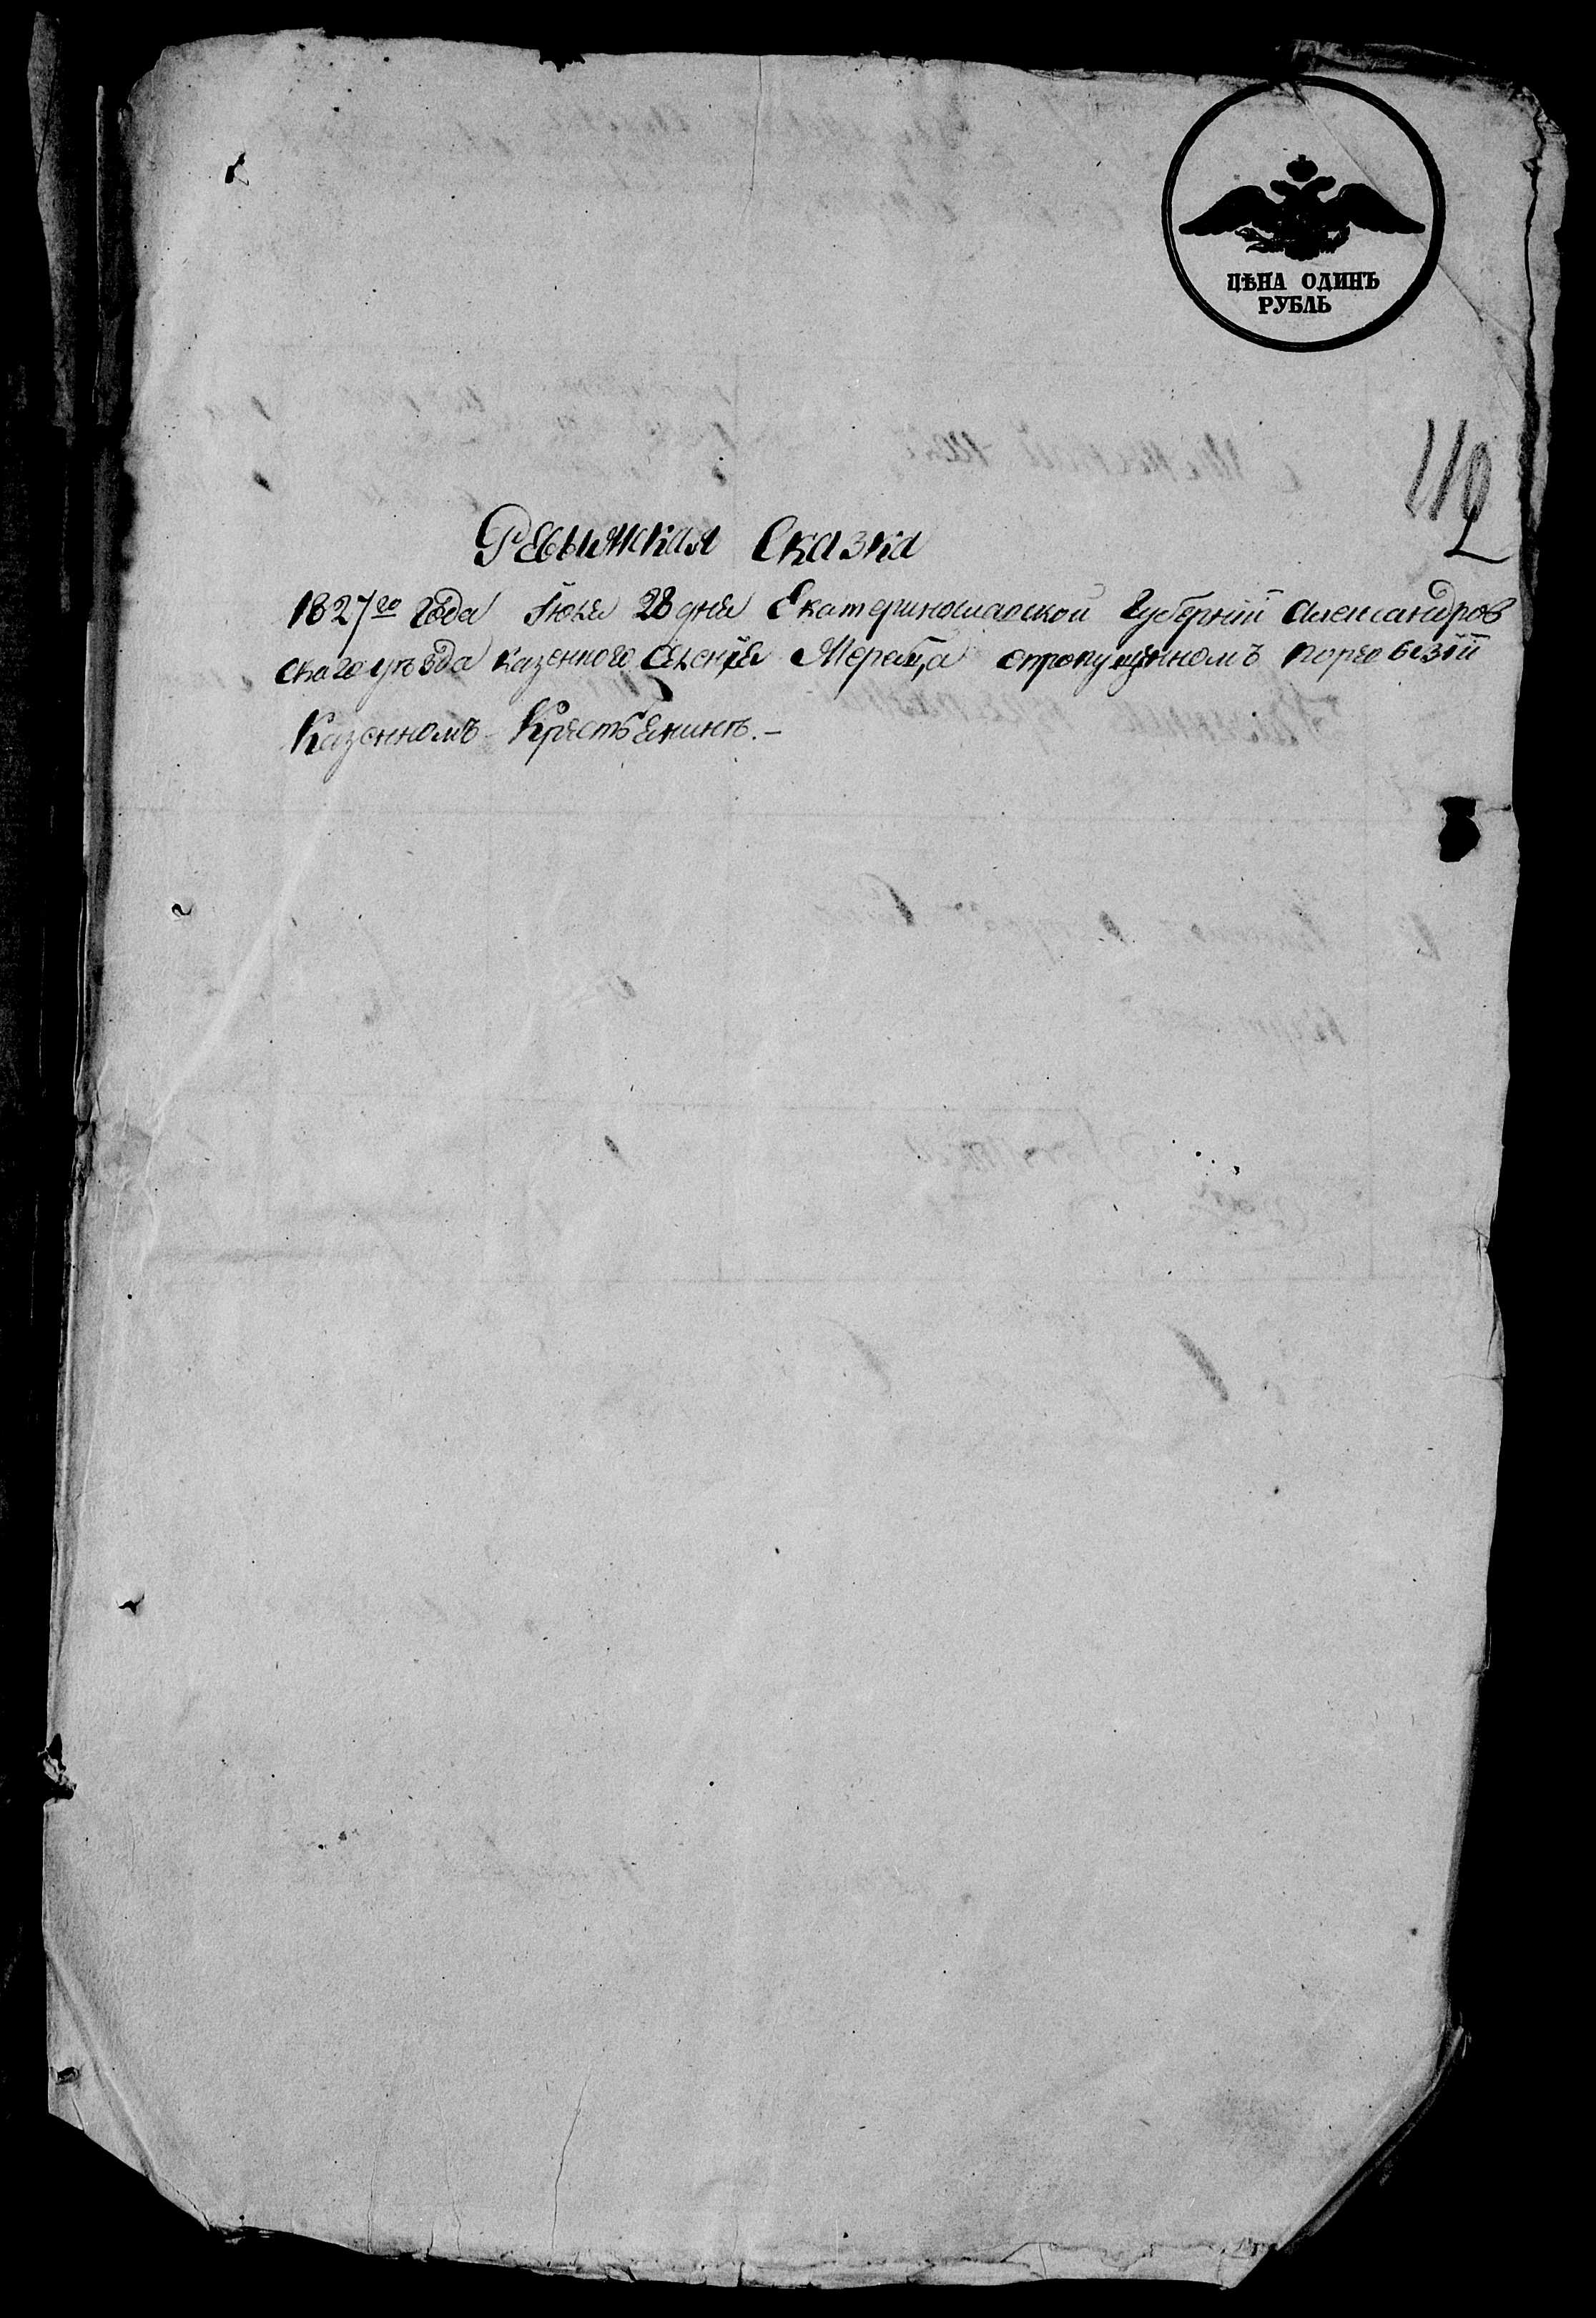 ЦѢНА ОДИНЪ
РУБЛЬ
112
Ревижская Сказка
1827го года Июля 28 дня Екатеринославской Губернїи Александров
скаго уѣзда казенного селенїя опропущенномъ поревизїи
Казенномъ Крестьянинѣ.-